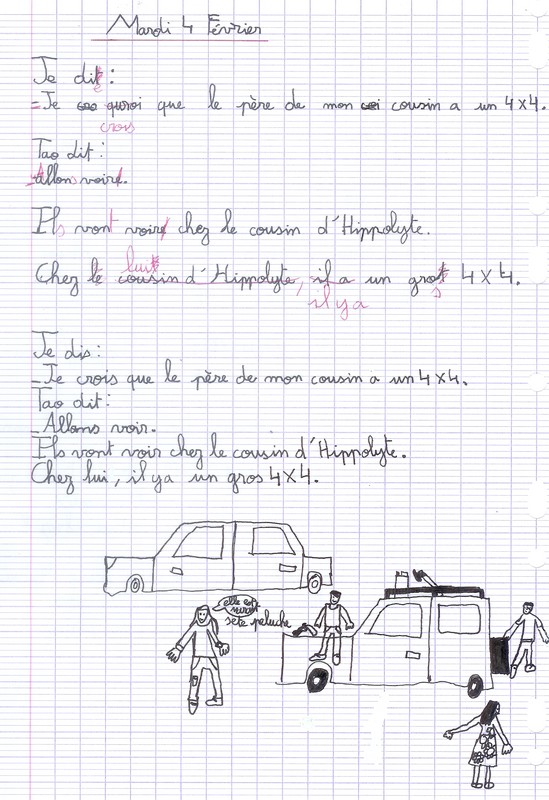 Mardi 4 Février
Je dit :
- Je quroi que le père de mon cousin a un 4x4.
crois
Tao dit :
- Allons voir.
Ils vont voir chez le cousin d'Hippolyte.
lui
Chez le cousin d'Hippolyte, il a un gros 4 x 4.
s
il y a
Je dis :
- Je crois que le père de mon cousin a un 4x4.
Tao dit :
- Allons voir.
Ils vont voir chez le cousin d'Hippolyte.
Chez lui, il y a un gros 4x4.
elle est
sete peluche